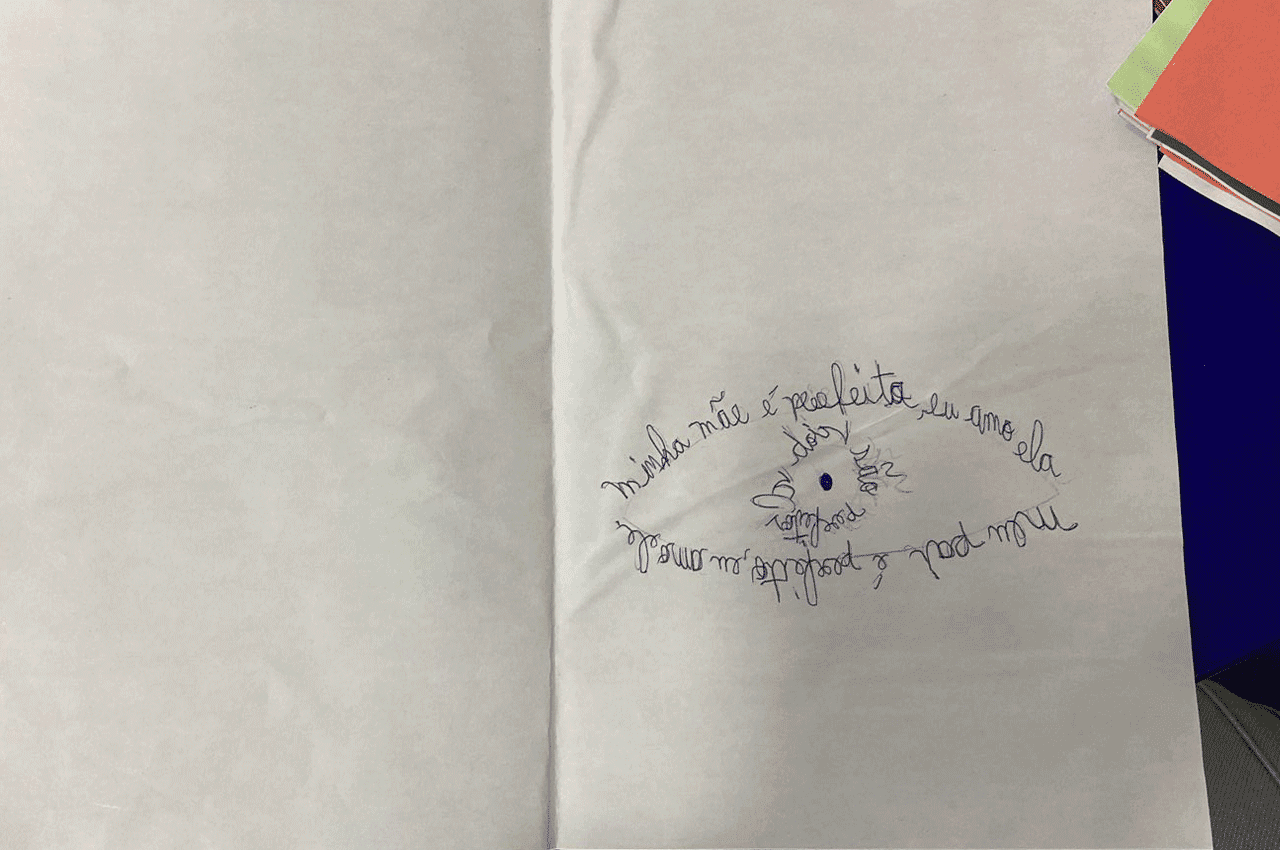 minha mãe é perfeita, eu amo ela
meu pai é perfeito, eu amo ele
os dois são perfeitos